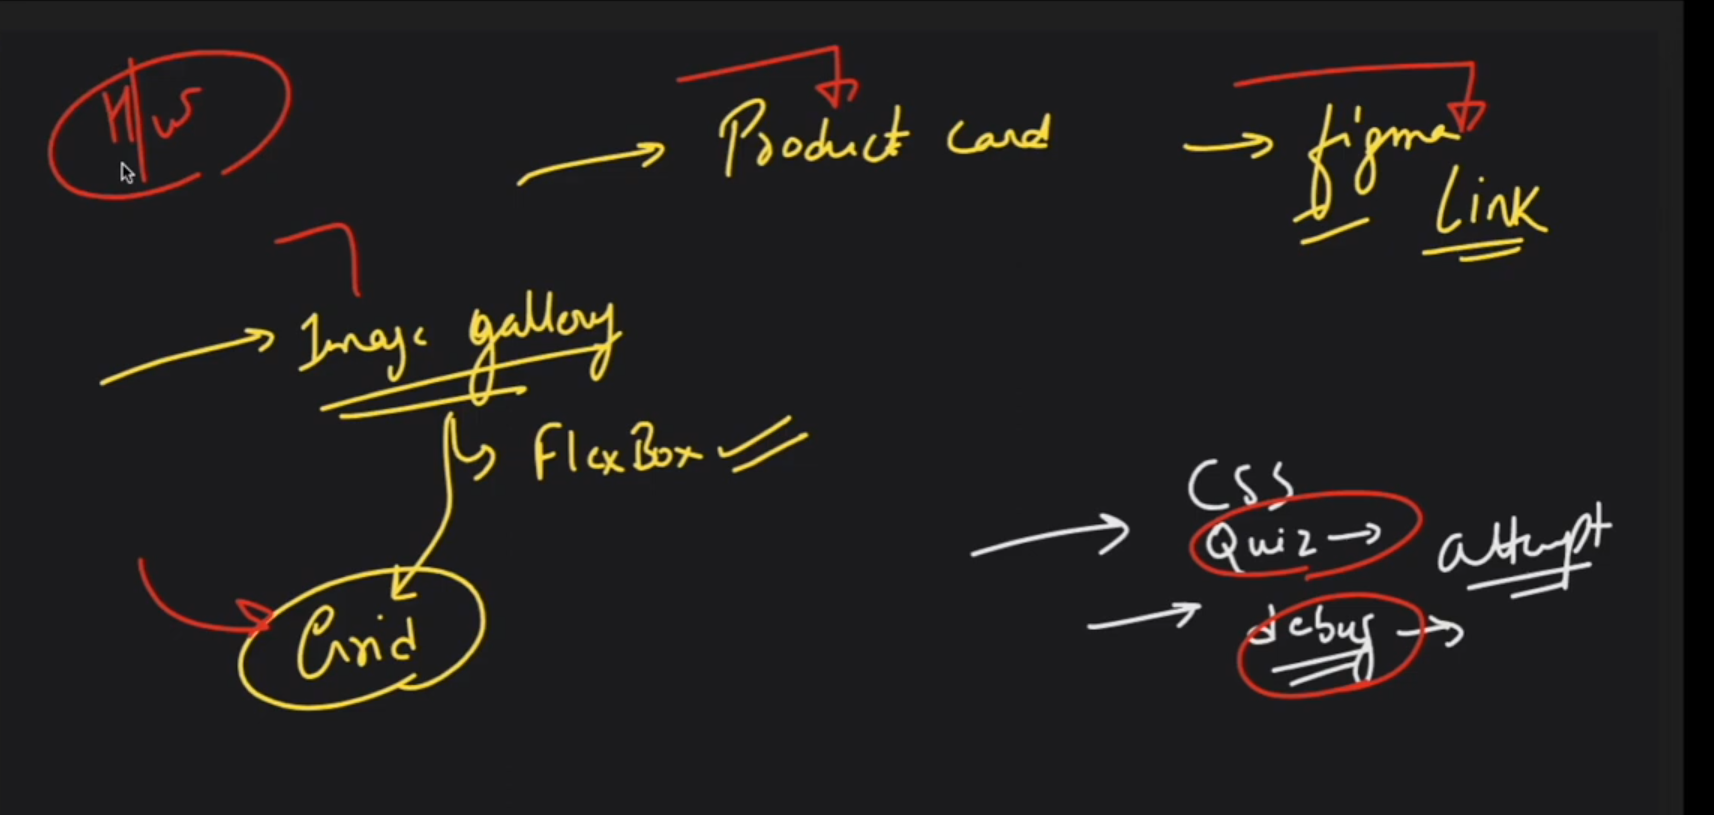 H/W
→ Product card → figma
Link
→ Image gallery
FlexBox
Grid
CSS
→ Quiz → attempt
→ debug →